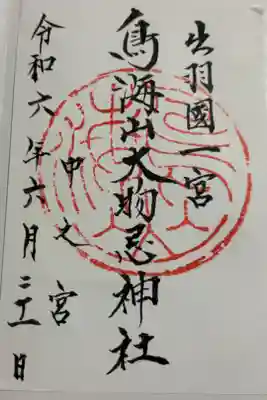 出羽國一宮
鳥海山大物忌神社
中之宮
令和六年六月二十一日